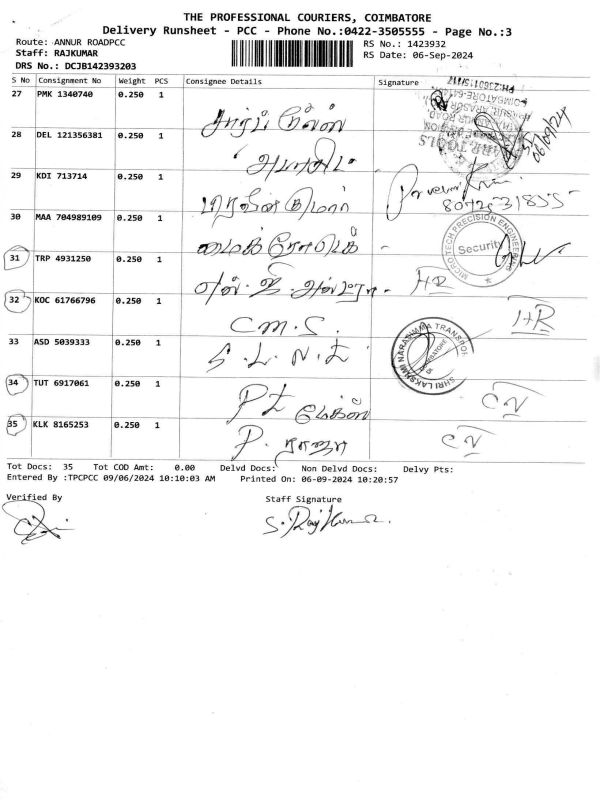 THE PROFESSIONAL COURIERS, COIMBATORE
Delivery Runsheet - PCC - Phone No.:0422-3505555 - Page No.:3
Route: ANNUR ROADPCC
RS No.: 1423932
Staff: RAJKUMAR
RS Date: 06-Sep-2024
DRS No.: DCJB142393203
S No Consignment No Weight PCS Consignee Details Signature
27 PMK 1340740 0.250 1 சார்ப் டூல்ஸ்
06/09/24
28 DEL 121356381 0.250 1
29 KDI 713714 0.250 1 பிரவீன் குமார்
30 MAA 704989109 0.250 1 மைக்ரோடெக்
MICROTECH PRECISION ENGINEERING
Security
31 TRP 4931250 0.250 1 HR
32 KOC 61766796 0.250 1 C.M.S. HR
33 ASD 5039333 0.250 1 S.L.N.T
SRI LAKSHMI NARASIMMA TRANSPORT
34 TUT 6917061 0.250 1
35 KLK 8165253 0.250 1 P. ராஜா
Tot Docs: 35 Tot COD Amt: 0.00 Delvd Docs: Non Delvd Docs: Delvy Pts:
Entered By :TPCPCC 09/06/2024 10:10:03 AM Printed On: 06-09-2024 10:20:57
Verified By Staff Signature
S. Raj Kumar.